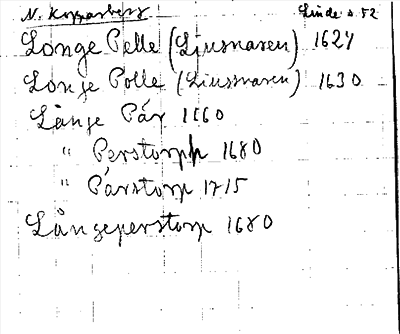 N. Kopparberg Linde s. 52
Longe Pelle (Ljusnaren) 1624
Longe Polle (Liusnaren) 1630
Långe Pär 1660
" Perstorp 1680
" Pärstorp 1715
Långeperstorp 1680